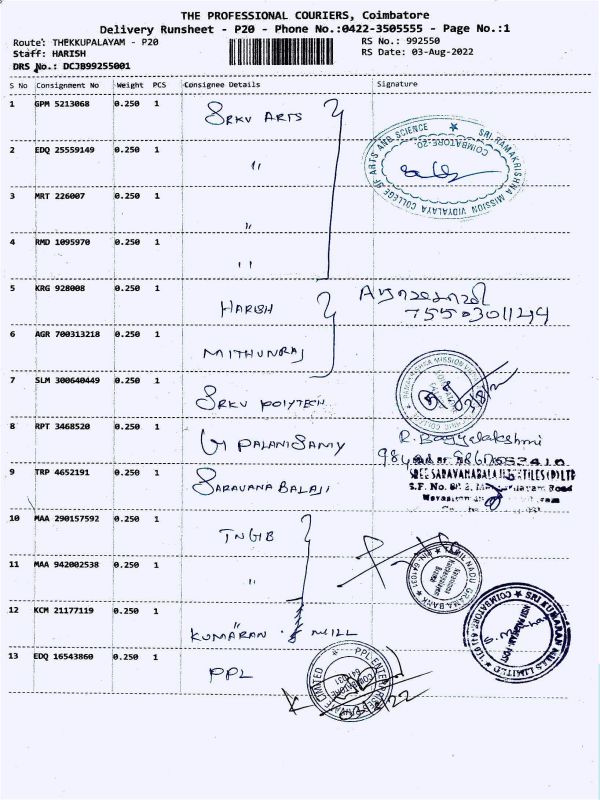 THE PROFESSIONAL COURIERS, Coimbatore
Delivery Runsheet - P20 - Phone No.:0422-3505555 - Page No.:1
Route: THEKKUPALAYAM - P20
RS No.: 992550
Staff: HARISH
RS Date: 03-Aug-2022
DRS No.: DCJB99255001
S No Consignment No Weight PCS Consignee Details Signature
1 GPM 5213068 0.250 1 SRKV ARTS
SRI RAMAKRISHNA MISSION VIDYALAYA COLLEGE OF ARTS AND SCIENCE
COIMBATORE-20.
2 EDQ 25559149 0.250 1 "
3 MRT 226007 0.250 1 "
4 RMD 1095970 0.250 1 "
5 KRG 928008 0.250 1 HARISH
6 AGR 700313218 0.250 1 MITHUNRAJ
7 SLM 300640449 0.250 1 SRKV POLYTECH
3/8/22
8 RPT 3468520 0.250 1 G PALANISAMY R. Bagyalakshmi
9 TRP 4652191 0.250 1 SARAVANA BALAJI
S.F. No.
10 MAA 290157592 0.250 1 TNGB
TAMIL NADU GRAMA BANK
11 MAA 942002538 0.250 1 "
12 KCM 21177119 0.250 1 KUMARAN MILL
SRI KUMARAN MILLS LIMITED
13 EDQ 16543860 0.250 1 PPL